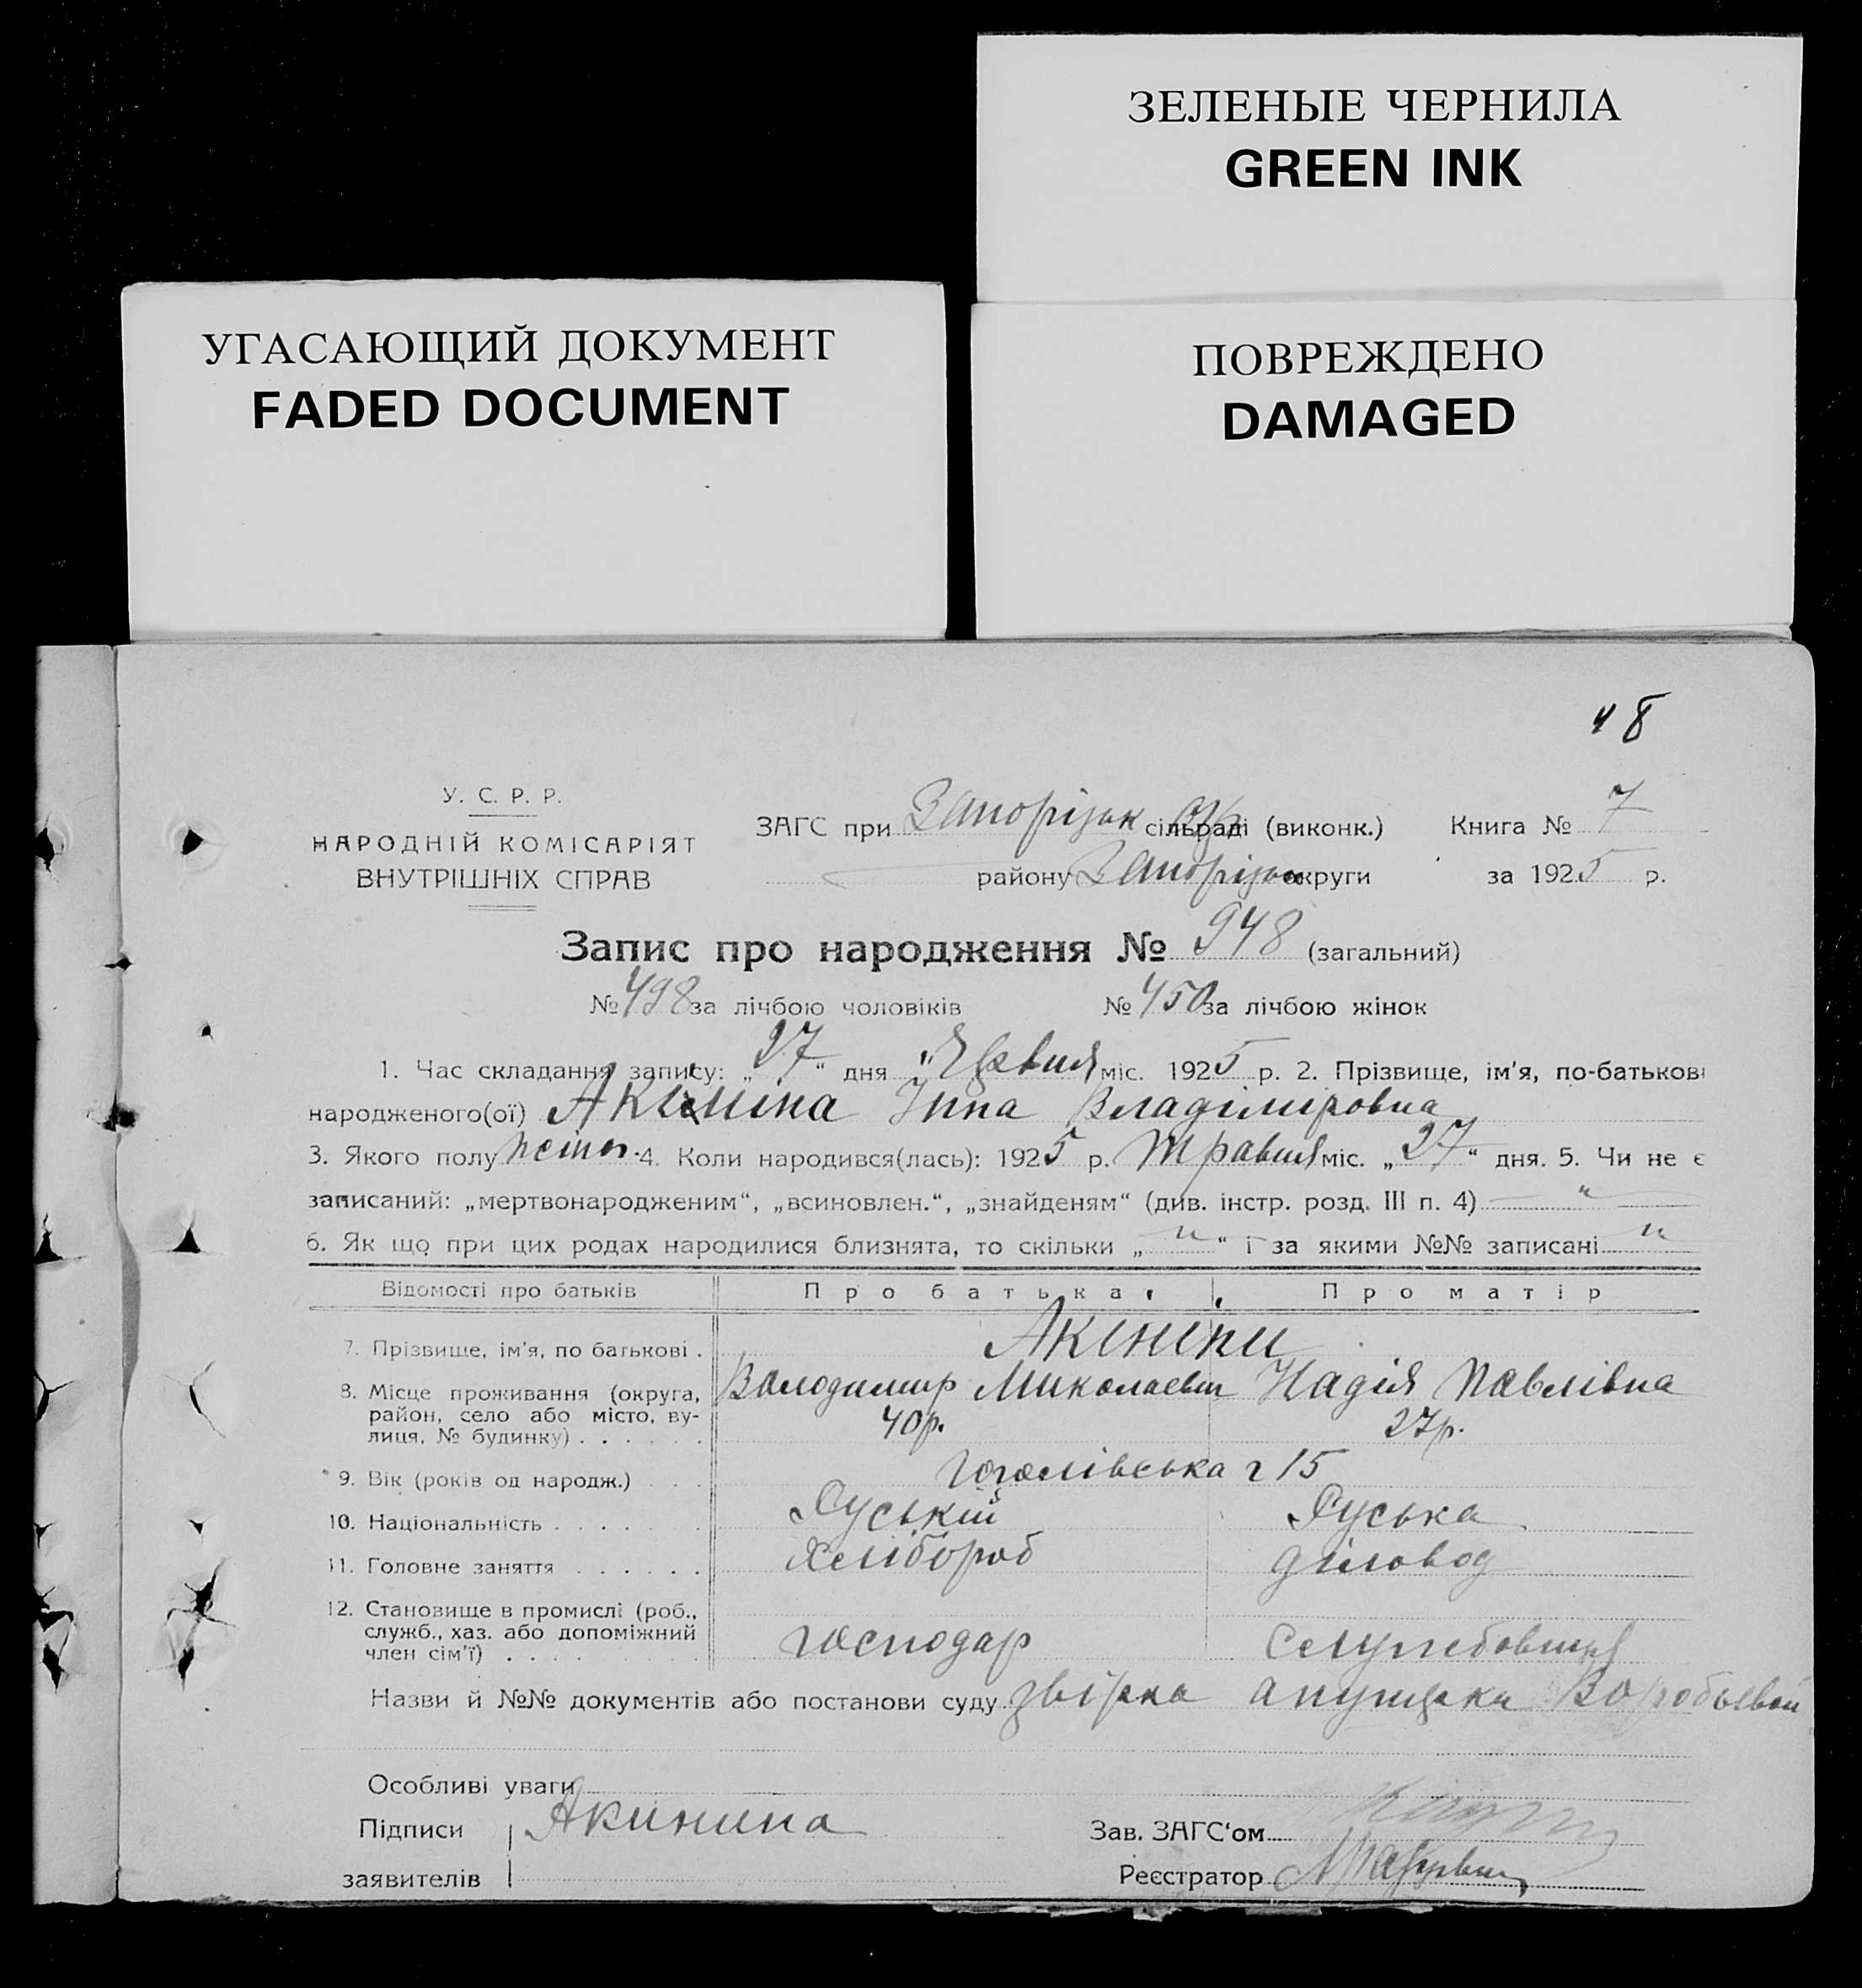 ЗЕЛЕНЫЕ ЧЕРНИЛА
GREEN INK
УГАСАЮЩИЙ ДОКУМЕНТ
FADED DOCUMENT
ПОВРЕЖДЕНО
DAMAGED
48
У. С. Р. Р.
НАРОДНІЙ КОМІСАРІЯТ
ВНУТРІШНІХ СПРАВ
ЗАГС при Запорізьк сільраді (виконк.) Книга № 7
району Запорізьк округи за 1925 р.
Запис про народження № 948 (загальний)
№ 498 за лічбою чоловіків № 450 за лічбою жінок
1. Час складання запису: „27“ дня Червня міс. 1925 р. 2. Прізвище, ім'я, по-батькові
народженого(ої) Акініна Інна Владіміровна
3. Якого полу жіноч. 4. Коли народився(лась): 1925 р. Травня міс. „27“ дня. 5. Чи не є
записаний: „мертвонародженим“, „всиновлен.“, „знайденям“ (див. інстр. розд. III п. 4) "
6. Як що при цих родах народилися близнята, то скільки „ " “ і за якими №№ записані "
Відомості про батьків Про батька Про матір
7. Прізвище, ім'я, по батькові . Акініни
8. Місце проживання (округа, Володимир Миколаевич Надія Павлівна
район, село або місто, ву- 40р. 27р.
лиця, № будинку) . . . . . .
9. Вік (років од народж.) . . . Гоголівська 15
10. Національність . . . . . . Руський Руська
11. Головне заняття . . . . . . Хлібороб діловод
12. Становище в промислі (роб.,
служб., хаз. або допоміжний господар Службовиця
член сім'ї) . . . .
Назви й №№ документів або постанови суду звірка акушерки Воробьевой
Особливі уваги
Підписи Акинина Зав. ЗАГС'ом
заявителів Реєстратор